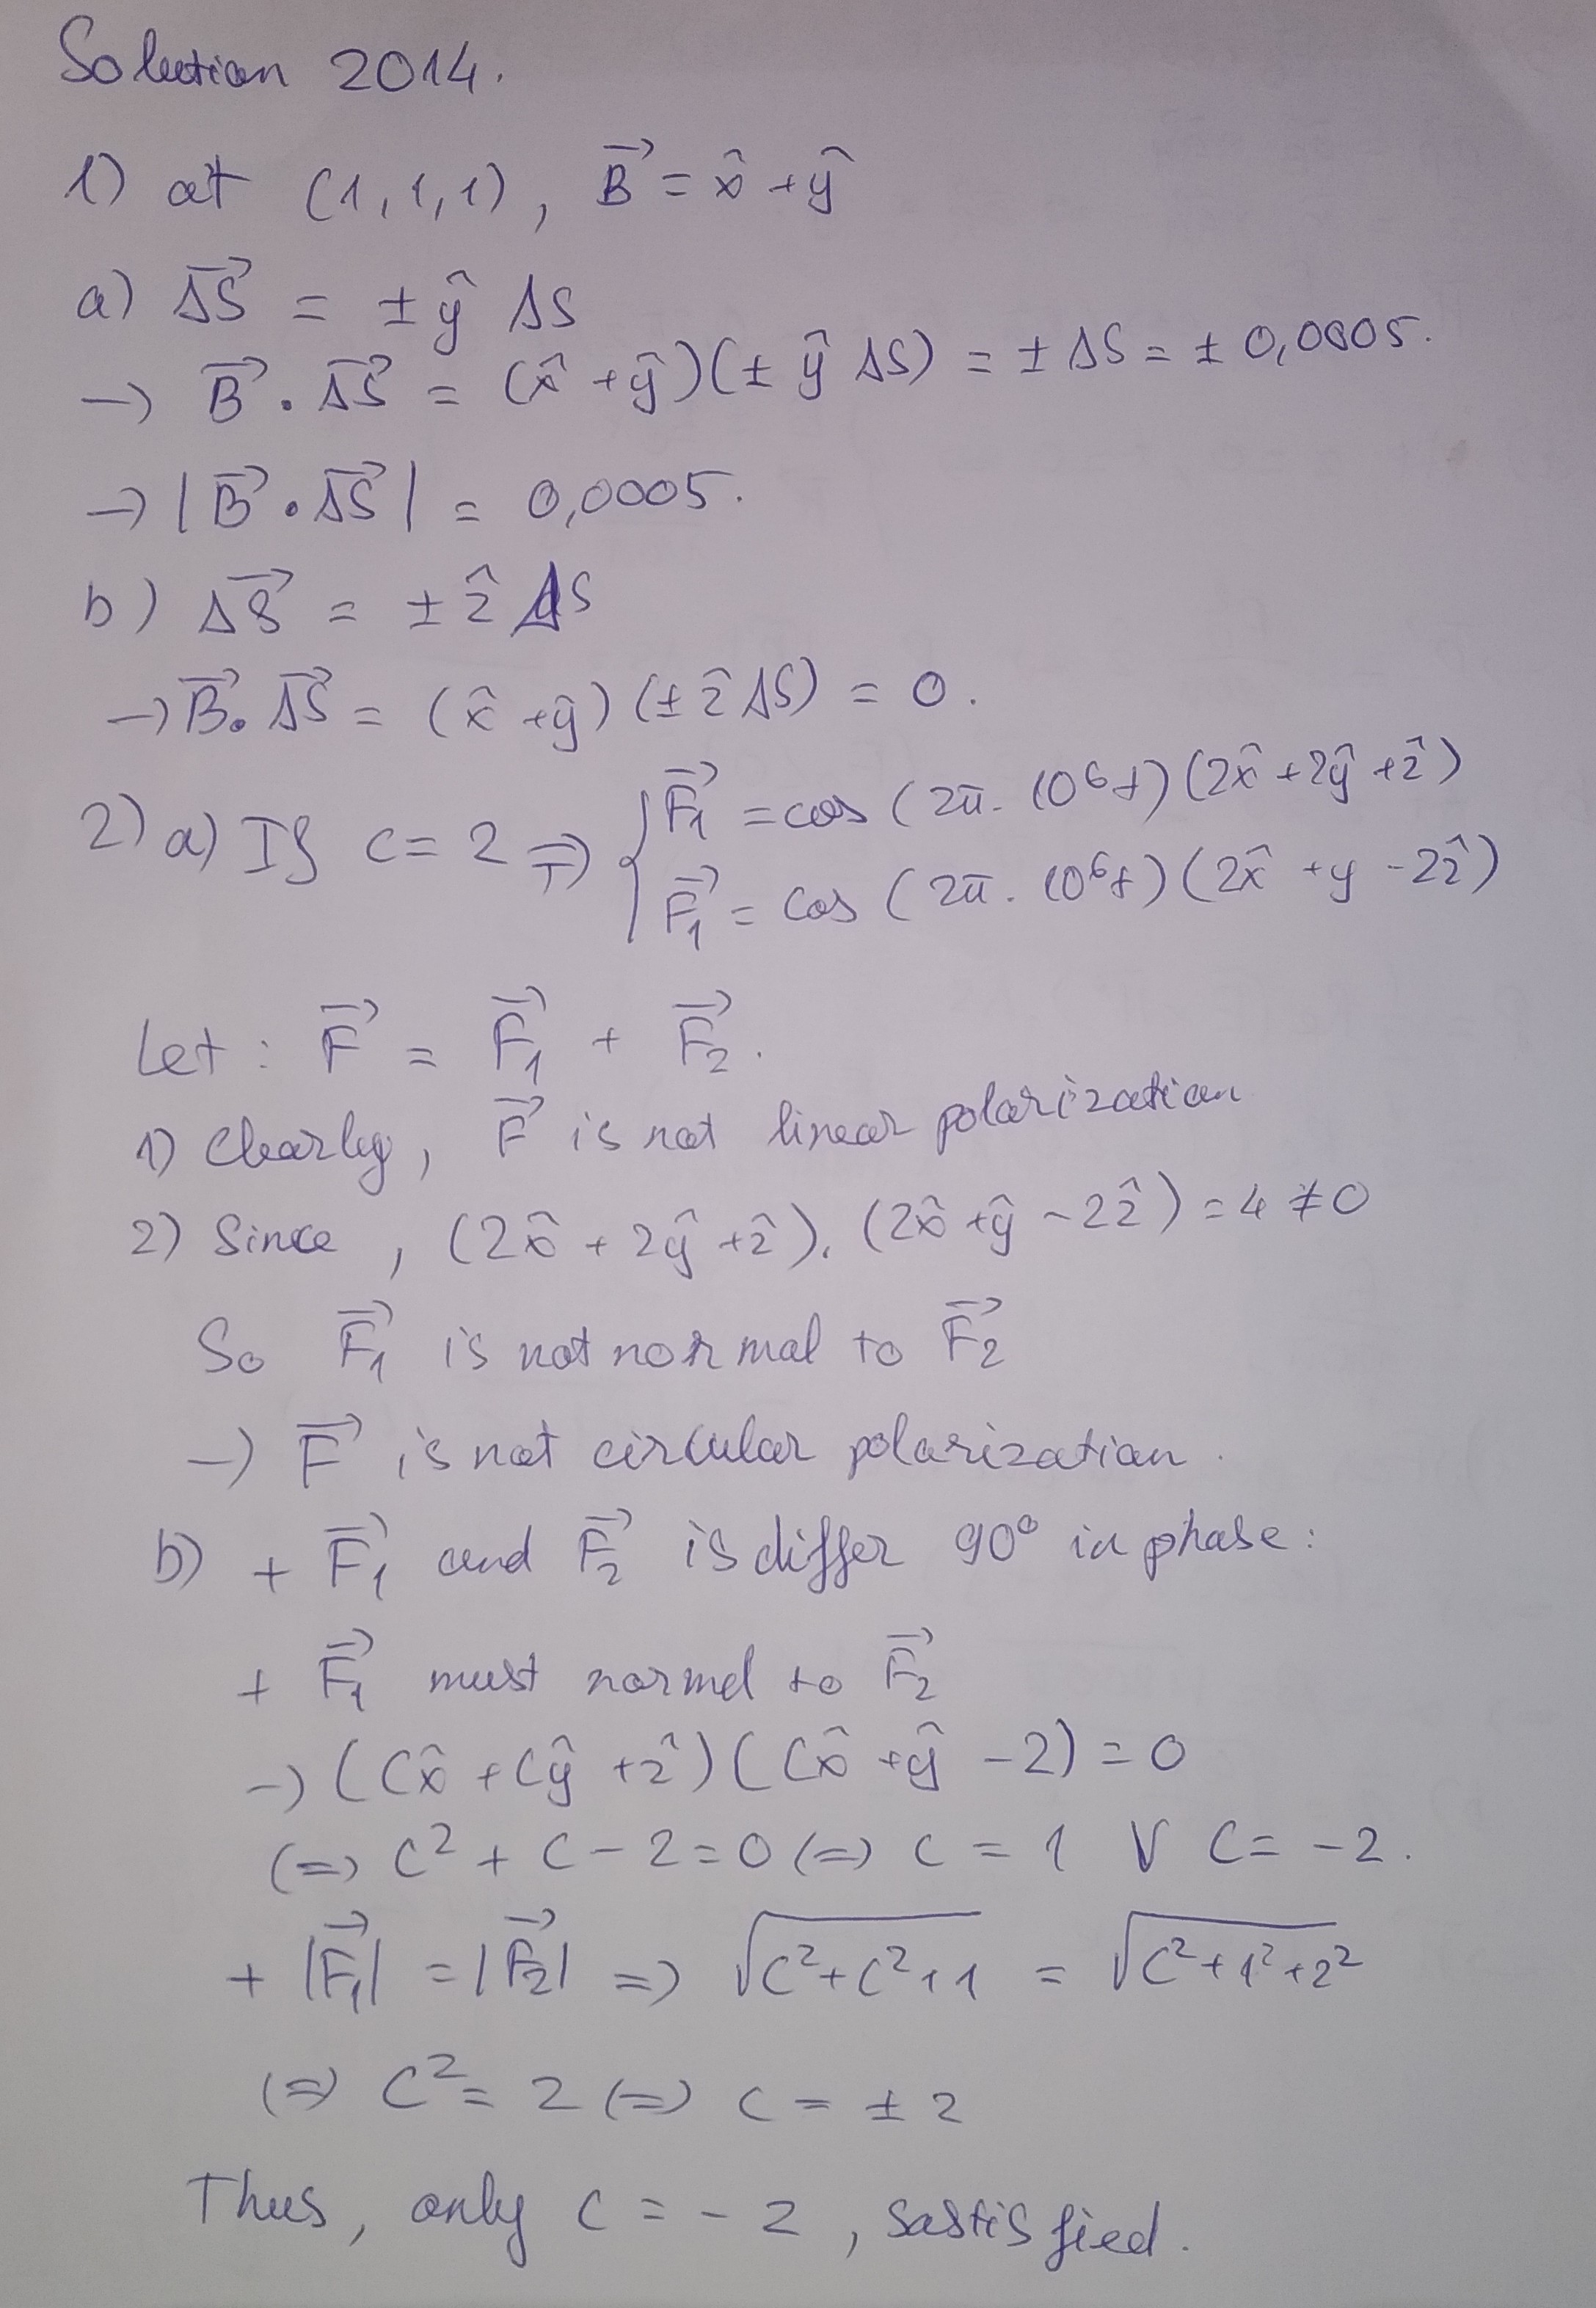 Solution 2014.
1) at (1,1,1), B⃗ = x̂ + ŷ
a) ΔS⃗ = ± ŷ ΔS
→ B⃗ . ΔS⃗ = (x̂ + ŷ)(± ŷ ΔS) = ± ΔS = ± 0,0005.
→ |B⃗ . ΔS⃗| = 0,0005.
b) ΔS⃗ = ± ẑ ΔS
→ B⃗ . ΔS⃗ = (x̂ + ŷ)(± ẑ ΔS) = 0.
2) a) If c = 2 ⇒ { F⃗₁ = cos(2π. 10⁶t)(2x̂ + 2ŷ + ẑ)
F⃗₁ = cos(2π. 10⁶t)(2x̂ + y - 2ẑ)
Let : F⃗ = F⃗₁ + F⃗₂.
1) Clearly, F⃗ is not linear polarization
2) Since, (2x̂ + 2ŷ + ẑ). (2x̂ + ŷ - 2ẑ) = 4 ≠ 0
So F⃗₁ is not normal to F⃗₂
→ F⃗ is not circular polarization.
b) + F⃗₁ and F⃗₂ is differ 90° in phase :
+ F⃗₁ must normel to F⃗₂
→ (Cx̂ + Cŷ + ẑ)(Cx̂ + ŷ - 2) = 0
⇔ C² + C - 2 = 0 ⇔ C = 1 V C = -2.
+ |F⃗₁| = |F⃗₂| ⇒ √(C² + C² + 1) = √(C² + 1² + 2²)
⇔ C² = 2 ⇔ C = ± 2
Thus, only C = - 2, sastisfied.